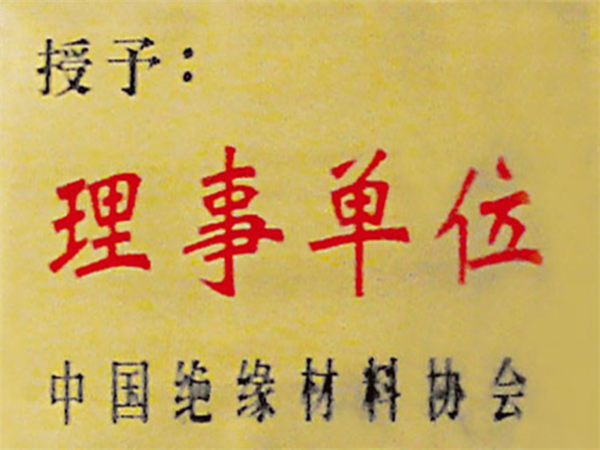 授予：
理事单位
中国绝缘材料协会